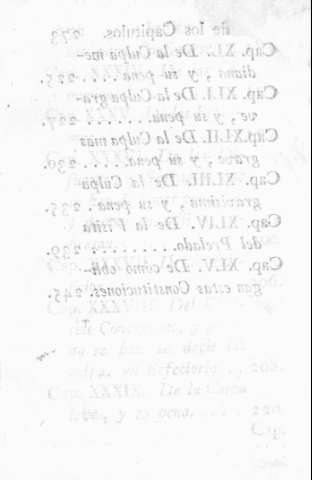 de los Capitulos. 273
Cap. XL. De la Culpa me-
diana, y su pena.... 225.
Cap. XLI. De la Culpa gra-
ve, y su pena....... 227.
Cap. XLII. De la Culpa mas
grave, y su pena..... 230.
Cap. XLIII. De la Culpa
gravissima, y su pena. 235.
Cap. XLIV. De la Visita
del Prelado.......... 239.
Cap. XLV. De como obli-
gan estas Constituciones. 245.
Cap. XXXVIII. Del
se han de decir las
culpas, en Refectorio.., 208.
Cap. XXXIX. De la Culpa
leve, y su pena..... 220.
Cap.